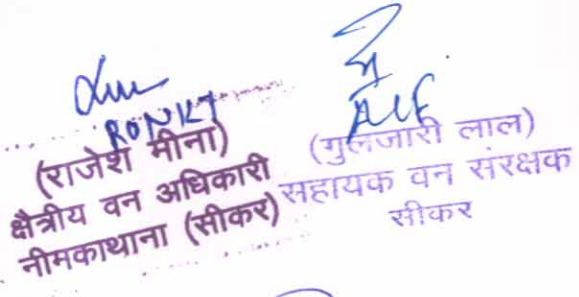 RONKT
(राजेश मीना)
क्षैत्रीय वन अधिकारी
नीमकाथाना (सीकर)
ACF
(गुलजारी लाल)
सहायक वन संरक्षक
सीकर